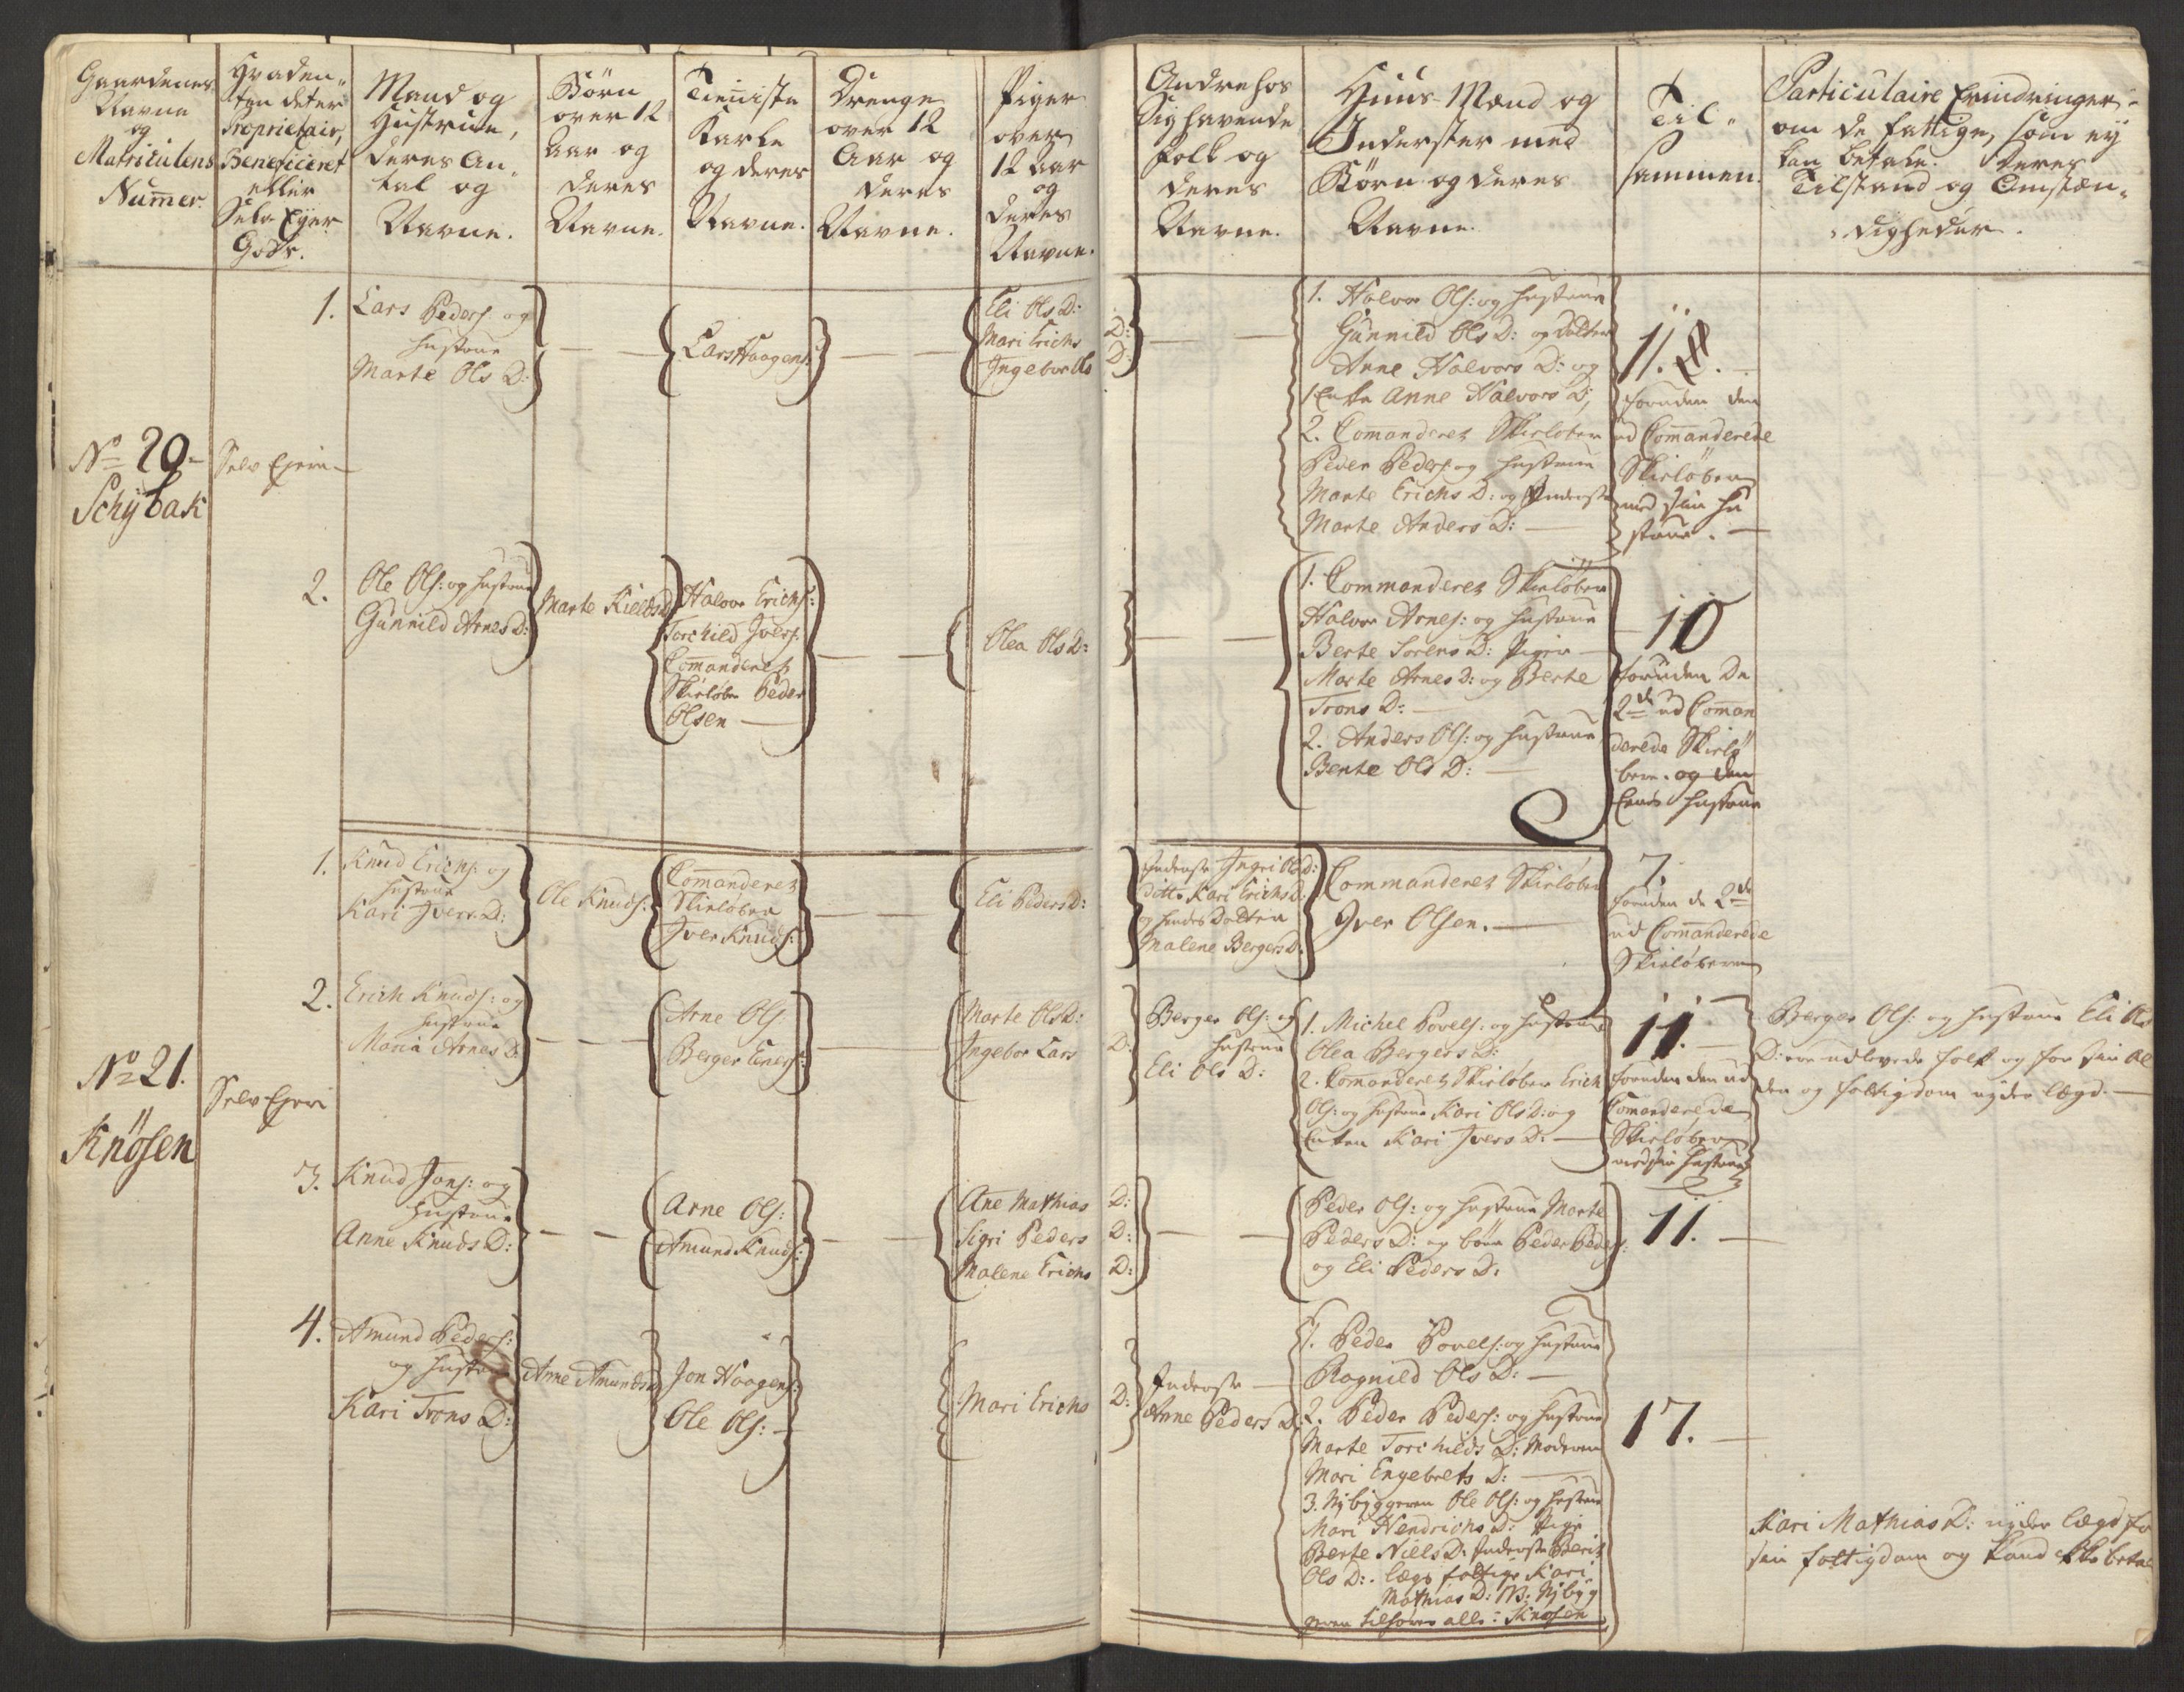 Gaardenes
Navne
og
Matriculens
Numer.
Hvaden
ten det er
Proprietair,
Beneficeret
eller
Selv Ejer
Gods.
Mand og
Hustrue,
deres An-
tal og
Navne.
Börn
over 12
Aar og
deres
Navne.
Tieniste
Karle
og deres
Navne.
Drenge
over 12
Aar og
deres
Navne.
Piger
over
12 Aar
og
deres
Navne.
Andre hos
Sig havende
folk og
deres
Navne.
Huus-Mænd og
Inderster med
Börn og deres
Navne.
Til-
sammen.
Particulaire Erindringer
om de fattige, som ey
kan betale. Deres
Tilstand og Omstæn-
digheder.
No 20
Schybak
Selv Ejere
1. Lars Peders: og
hustrue
Marte Ols D:
Lars Haagens:
Eli Ols D:
Mari Erichs D:
Ingebor Ols D:
1. Halvor Ols: og hustrue
Gunnild Ols D: og dotter
Anne Halvors D: og
1 Enke Anne Halvors D:
2. Comanderet Skieløber
Peder Peders: og hustrue
Marte Erichs D: og Inderste
Marte Anders D:
11.
foruden den
ud Comanderede
Skieløber
med sin hu
strue.
2. Ole Ols: og hustrue
Gunnild Arnes D:
Marte Kields D:
Halvor Erichs:
Torchild Ivers:
Comanderet
Skieløber Peder
Olsen
Olea Ols D:
1. Commanderet Skieløber
Halvor Arnes: og hustrue
Berte Sorens D: Pigen
Marte Arnes D: og Berthe
Trons D:
2. Anders Ols: og hustrue
Bente Ols D:
10
foruden De
2de ud Coman
derede Skielø
bere. og den
Eens hustrue
No 21.
Knösen
Selv Ejere
1. Knud Erichs: og
hustrue
Kari Ivers D:
Ole Knuds:
Comanderet
Skieløber
Iver Knuds:
Eli Peders D:
Inderste Ingri Ols D:
ditto Kari Erichs D:
og hendes Dotter
Malene Bergers D:
Commanderet Skieløber
Iver Olsen.
7.
foruden de 2de
ud Comanderede
Skieløbere
2. Erich Knuds: og
hustrue
Maria Arnes D:
Arne Ols:
Berger Eners:
Marte Ols D:
Ingebor Lars D:
Berger Ols: og
hustrue
Eli Ols D:
1. Michel Povels: og hustrue
Olea Bergers D:
2. Comanderet Skieløber Erich
Ols: og hustrue Kari Ols D: og
Enken Kari Ivers D:
11.
foruden den ud
Comanderede
Skieløber
med sin hustrue
Berger Ols: og hustrue Eli Ols
D: ere udlevede folk og for sin Al
der og fattigdom nyder lægd.
3. Knud Jons: og
hustrue
Anne Knuds D:
Arne Ols:
Amund Knuds:
Ane Mathias D:
Sigri Peders D:
Malene Erichs D:
Peder Ols: og hustrue Marte
Peders D: og børn Peder Peders:
og Eli Peders D:
11.
4. Amund Peders:
og hustrue
Kari Trons D:
Anne Amunds D
Jon Haagens:
Ole Ols:
Mari Erichs D:
Inderste
Anne Peders D:
1. Peder Povels: og hustrue
Ragnild Ols D:
2. Peder Peders: og hustrue
Marte Torchilds D: Moderen
Mari Engebrets D:
3. Nybyggeren Ole Ols: og hustrue
Mari Hendrichs D: Pige
Berte Niels D: Inderste Berit
Ols D: lægs fattige Kari
Mathias D: NB: Nybyg
geren tilhører alle Knösen
17.
Kari Mathias D: nyder lægd for
sin fattigdom og kand ikke betale